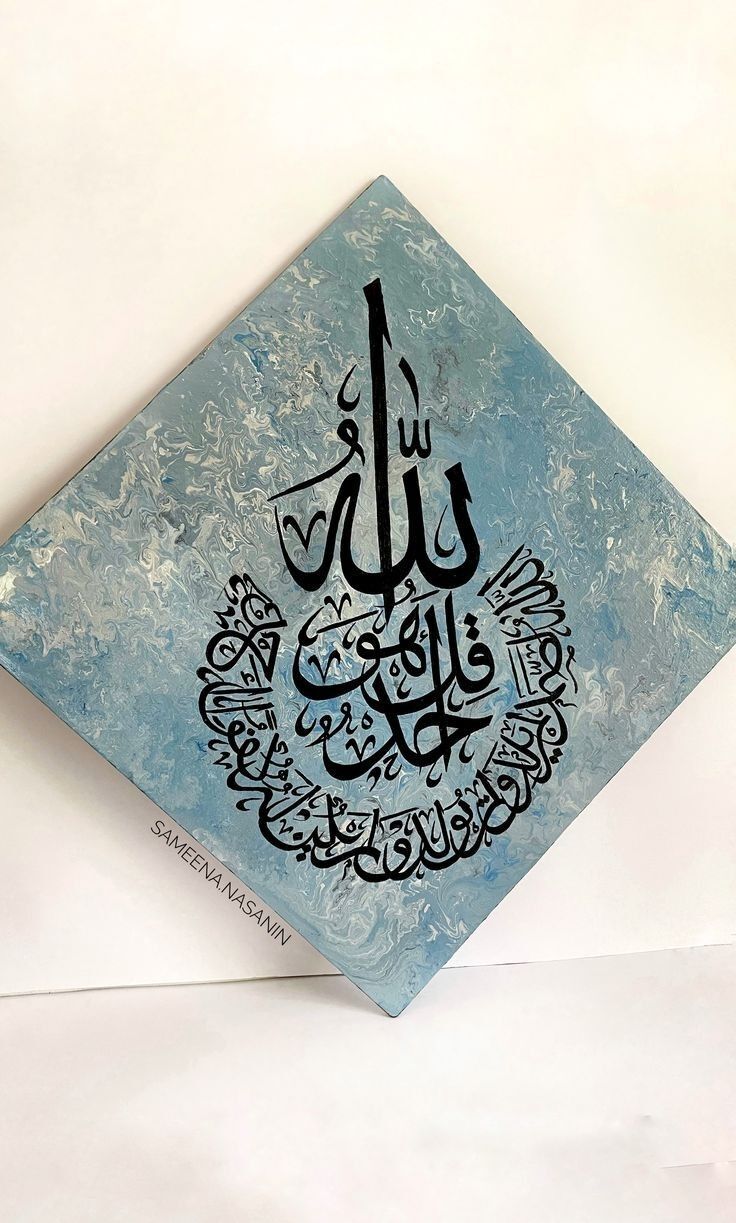 قُلْ هُوَ اللَّهُ أَحَدٌ
اللَّهُ الصَّمَدُ لَمْ يَلِدْ وَلَمْ يُولَدْ وَلَمْ يَكُنْ لَهُ كُفُوًا أَحَدٌ
SAMEENA.NASANIN